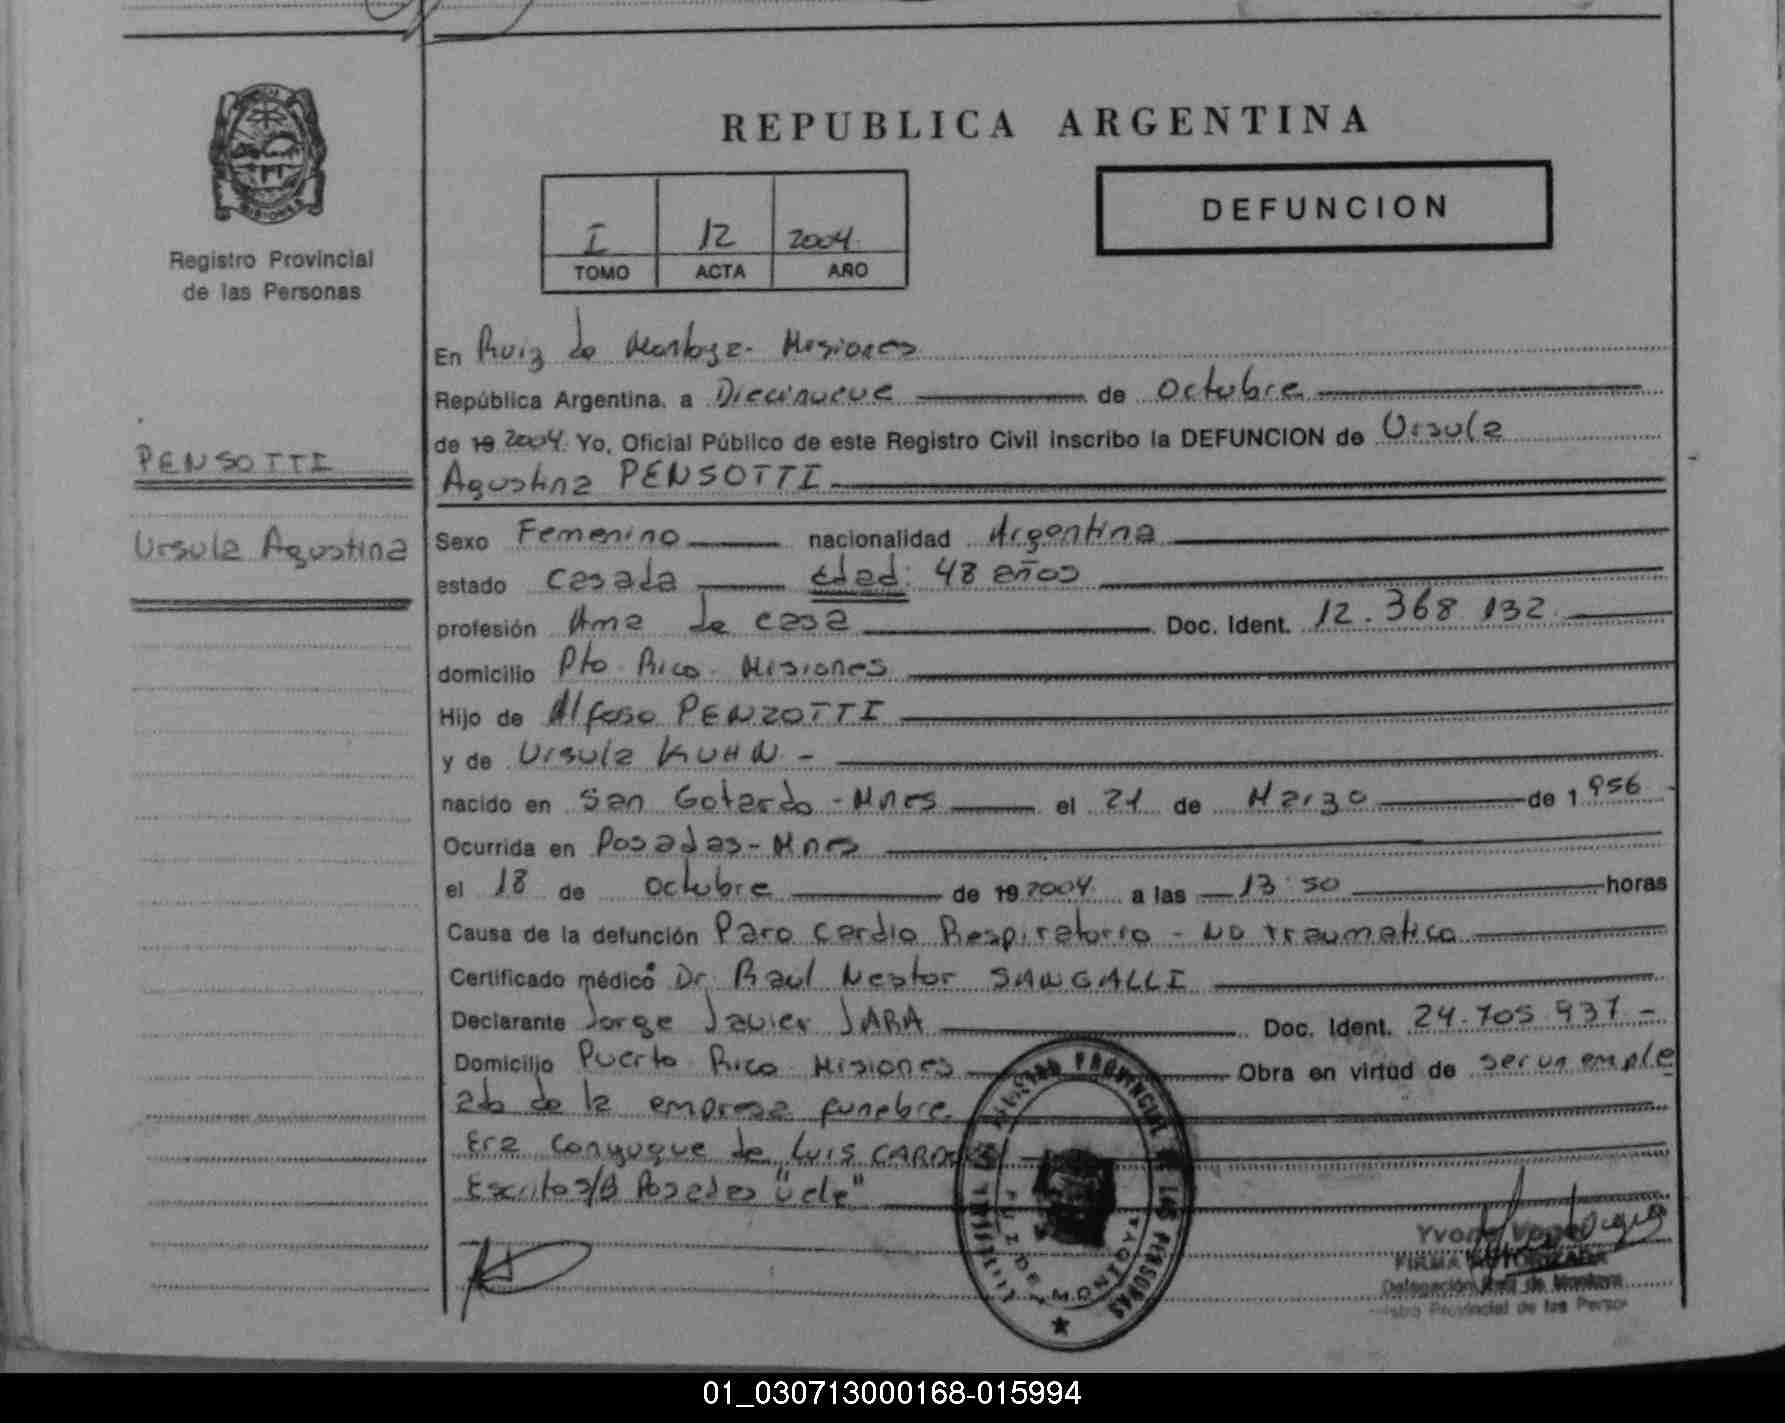 REPUBLICA ARGENTINA
DEFUNCION
I 12 2004
TOMO ACTA AÑO
MISIONES
Registro Provincial
de las Personas
PENSOTTI
Ursula Agustina
En Ruiz de Montoya - Misiones
República Argentina, a Diecinueve de Octubre
de 19 2004 Yo, Oficial Público de este Registro Civil inscribo la DEFUNCION de Ursula
Agustina PENSOTTI
Sexo Femenino nacionalidad Argentina
estado Casada edad: 48 años
profesión Ama de casa Doc. Ident. 12.368.132
domicilio Pto. Rico - Misiones
Hijo de Alfoso PENZOTTI
y de Ursula KUHN -
nacido en San Gotardo - Mnes el 21 de Marzo de 1956
Ocurrida en Posadas - Mnes
el 18 de octubre de 19 2004 a las 13:50 horas
Causa de la defunción Paro Cardio Respiratorio - No traumatico
Certificado médico Dr. Raul Nestor SANGALLI
Declarante Jorge Javier JARA Doc. Ident. 24.705.937 -
Domicilio Puerto Rico Misiones Obra en virtud de ser un emple
ado de la empresa funebre.
Era Conyugue de Luis
Escrito s/B Posadas "Vale"
REGISTRO PROVINCIAL DE LAS PERSONAS
RUIZ DE MONTOYA
MISIONES
Yvone
FIRMA AUTORIZADA
Delegación Ruiz de Montoya
istro Provincial de las Perso
01_030713000168-015994